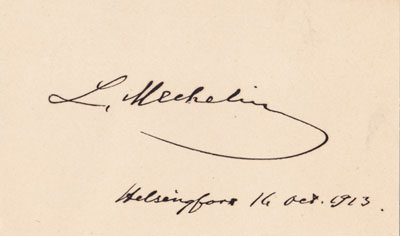 L. Mechelin
Helsingfors 16 oct. 1913.